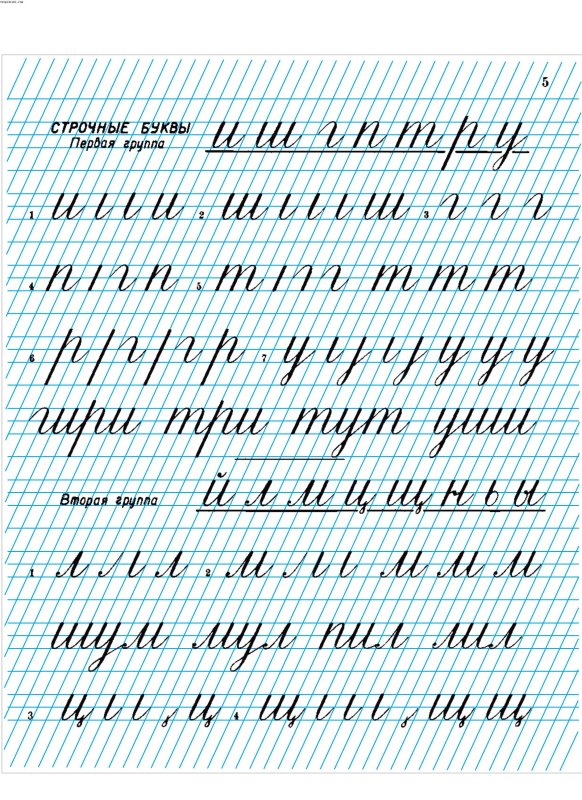 5
СТРОЧНЫЕ БУКВЫ и ш г п т р у
Первая группа
1 и ı ı и 2 ш ı ı ı ш 3 г г г
4 п ı г п 5 т ı г г т т т
6 р ı г р 7 у ı ȷ у у у у
шри три тут уши
Вторая группа й л м ц щ ч ь ы
1 л л ı л 2 м л ı ı м м м
шум мул пил мил
3 ц ı ı , ц 4 щ ı ı ı , щ щ